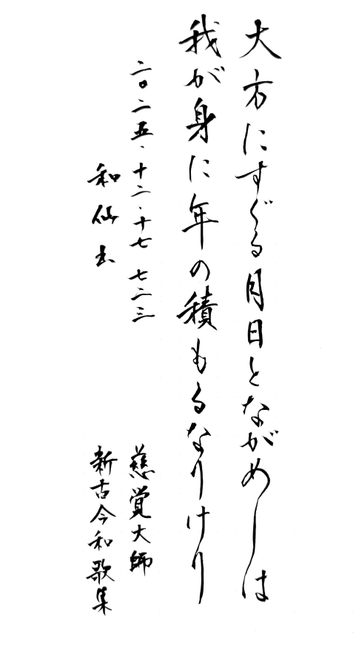 大方にすぐる月日とながめしは
我が身に年の積もるなりけり
二〇二五・十二・十七 七二三
和仙書
慈覚大師
新古今和歌集